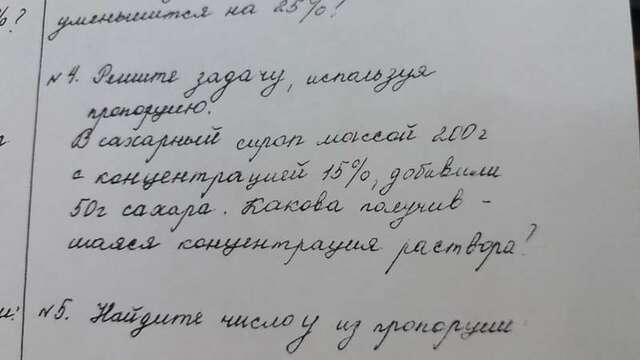 %?
уменьшится на 25%?
№4. Решите задачу, используя
пропорцию.
В сахарный сироп массой 200г
с концентрацией 15%, добавили
50г сахара. Какова получив -
шаяся концентрация раствора?
№5. Найдите число y из пропорции